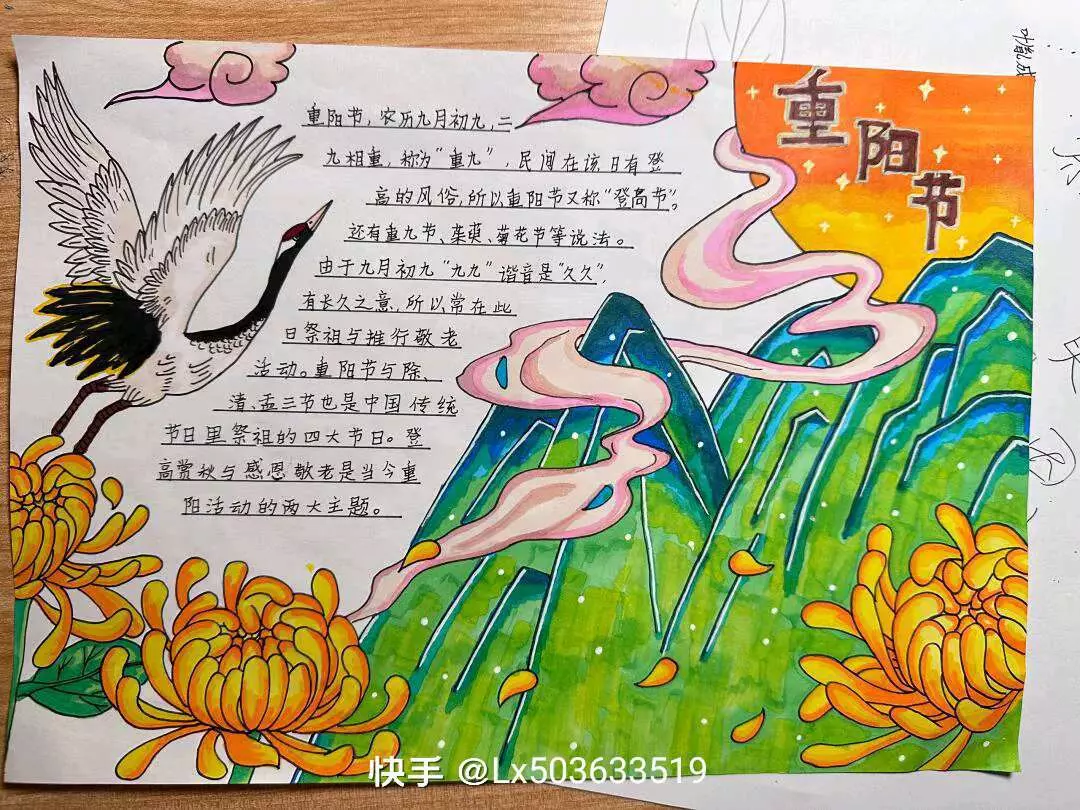 重阳节
重阳节，农历九月初九，二
九相重，称为“重九”，民间在该日有登
高的风俗，所以重阳节又称“登高节”。
还有重九节、茱萸、菊花节等说法。
由于九月初九“九九”谐音是“久久”，
有长久之意，所以常在此
日祭祖与推行敬老
活动。重阳节与除、
清、盂三节也是中国传统
节日里祭祖的四大节日。登
高赏秋与感恩敬老是当今重
阳活动的两大主题。
快手 @Lx503633519